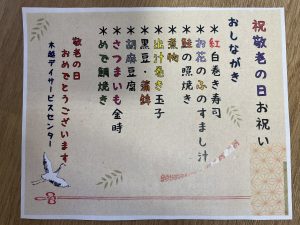 祝 敬老の日お祝い
おしながき
＊紅白巻き寿司
＊お花のふのすまし汁
＊鮭の照焼き
＊煮物
＊出汁巻き玉子
＊黒豆・
＊胡麻豆腐
＊さつまいも金時
＊めで鯛焼き
敬老の日
おめでとうございます
木越デイサービスセンター